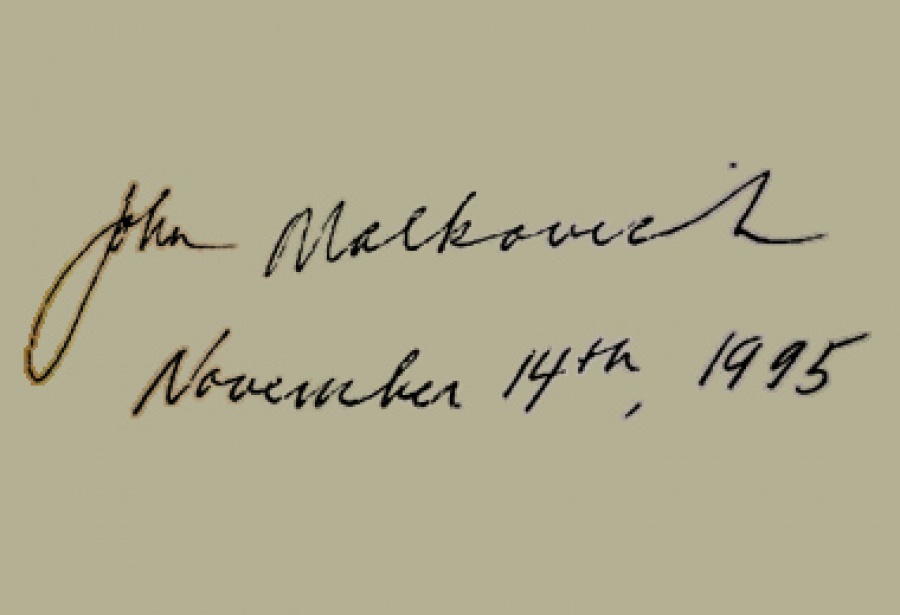 John Malkovich
November 14th, 1995